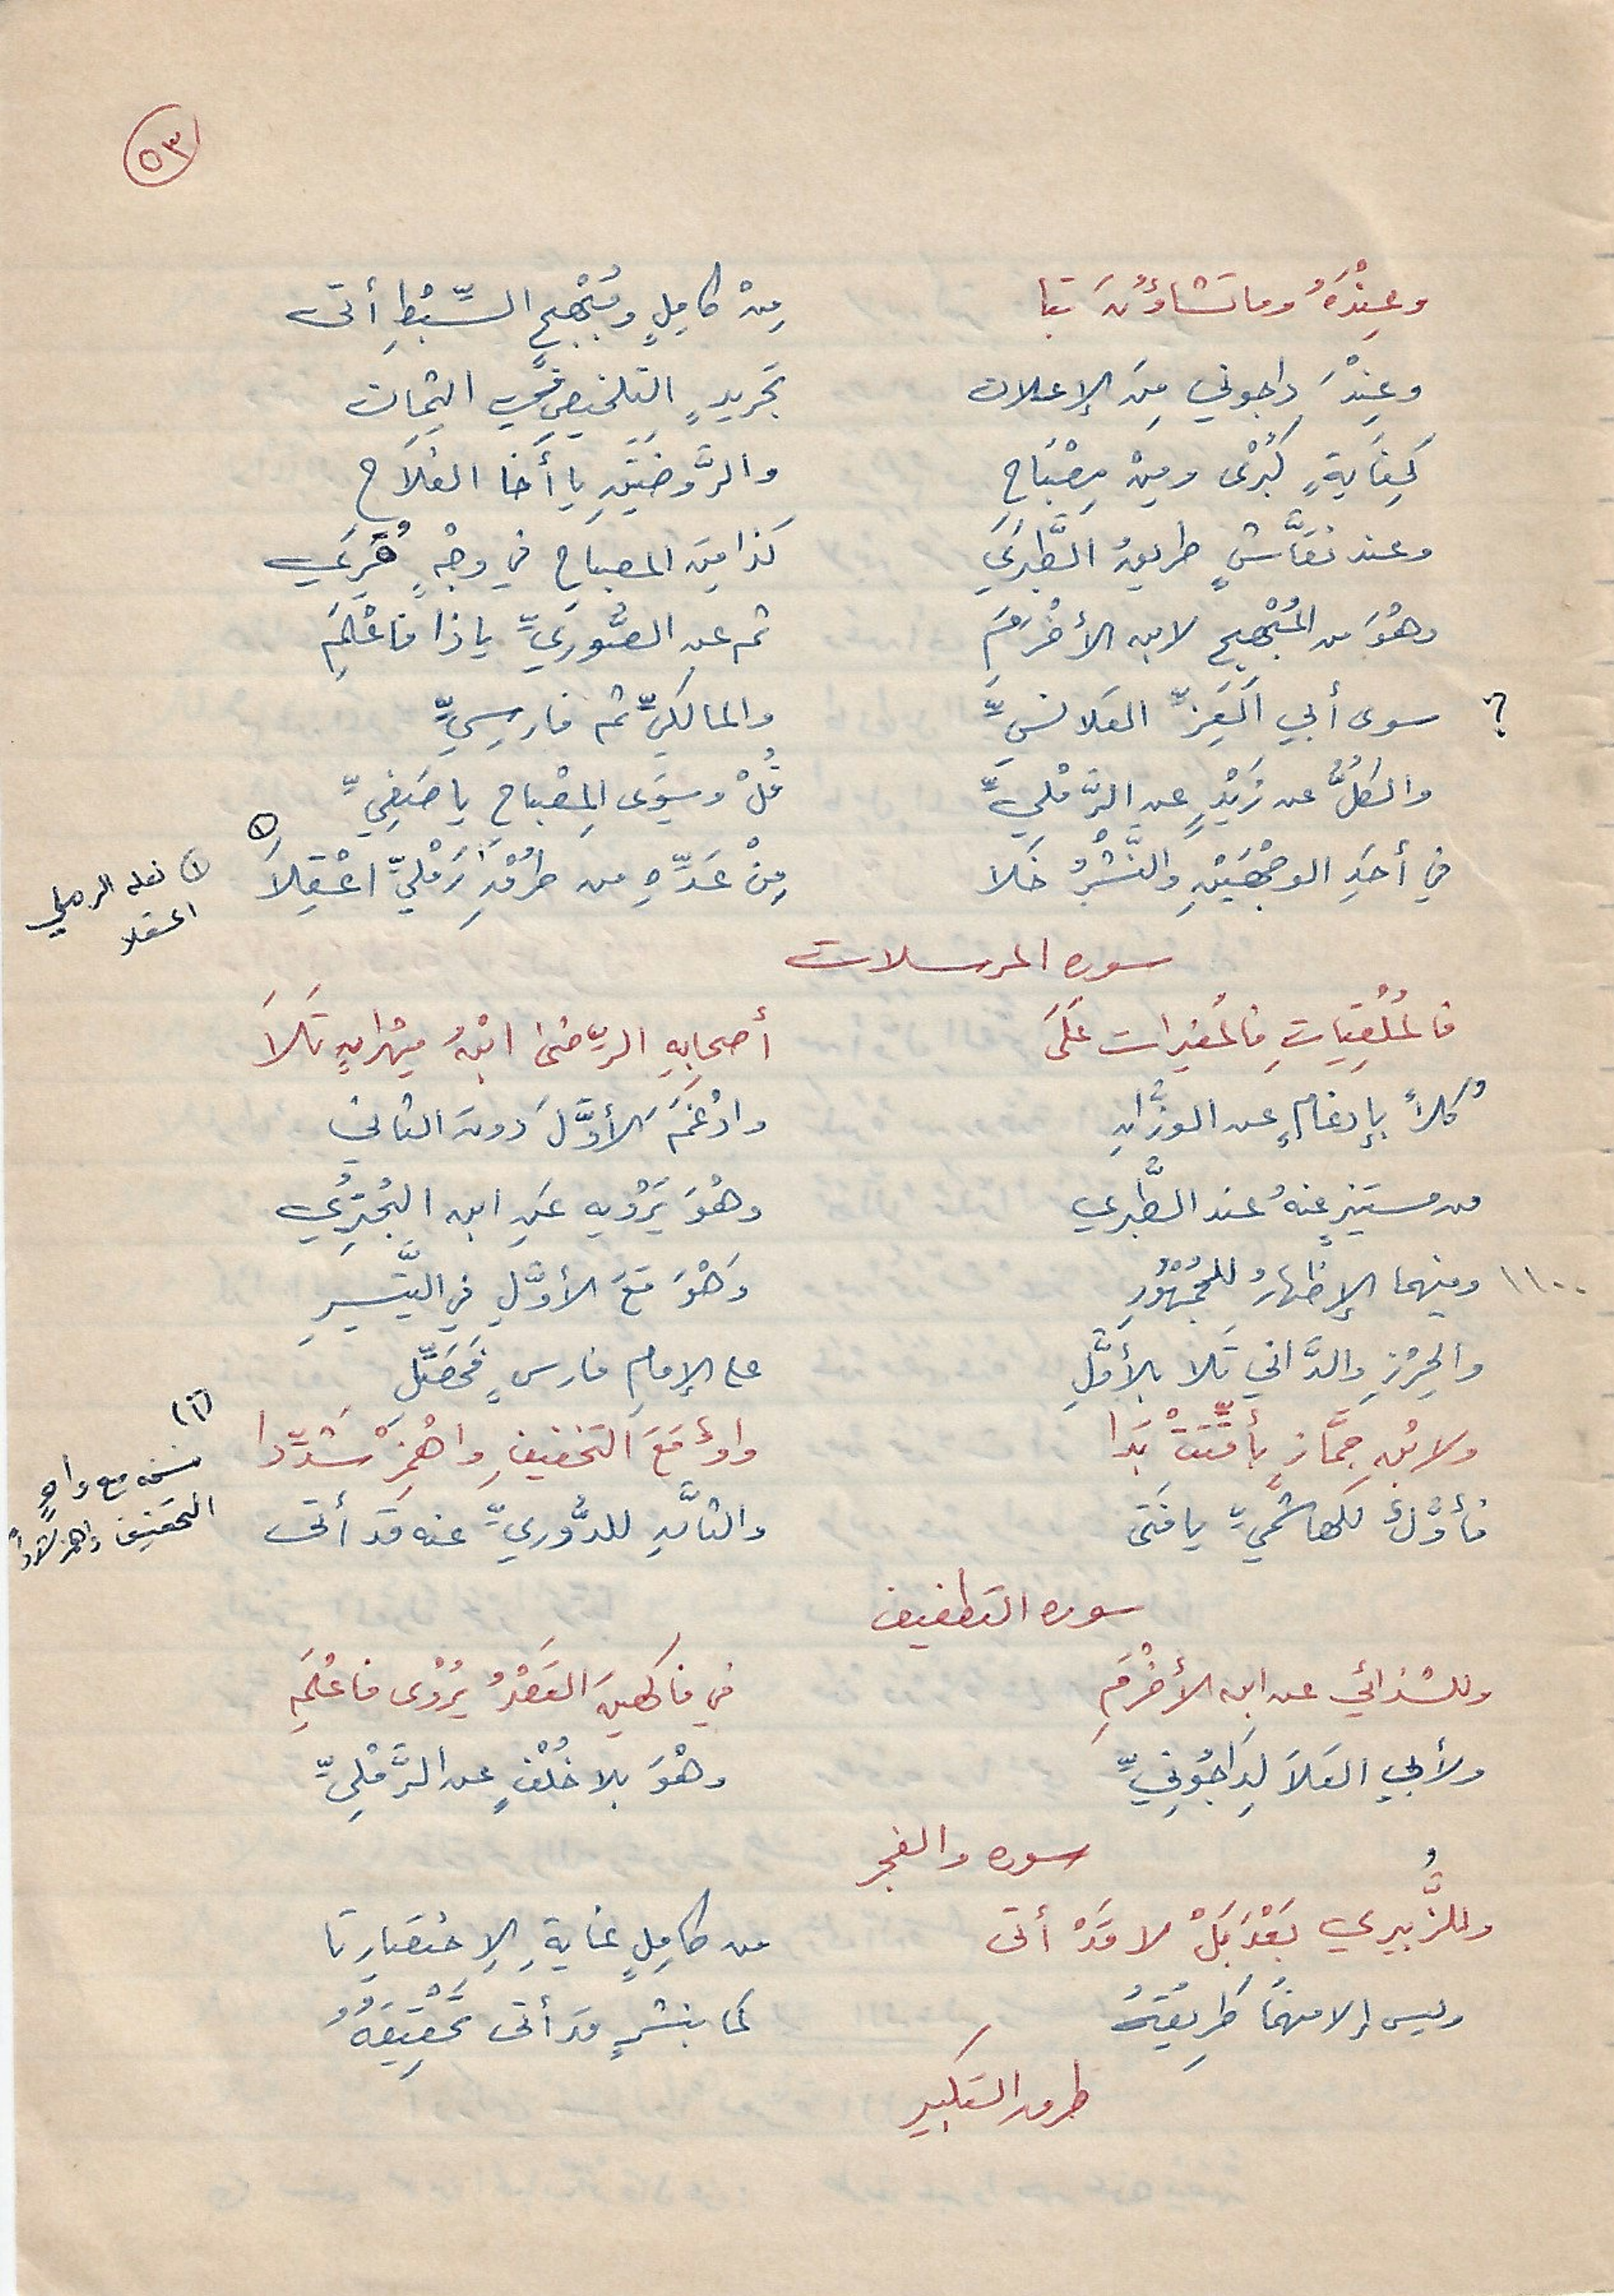 ٥٣
وعِنْدَهُ وما تَشاؤُنَ تبا مِنْ كامِلٍ ومُبْهِجِ السِّبْطِ أتى
وعِنْدَ داجوني مِنَ الإعلان تجريدٍ التلخيصِ في الثمان
كِفايةٍ كُبْرى ومِنْ مِصْبَاحِ والرَّوضَتَيْنِ يا أخا الفَلَاحِ
وعند نقَّاشٍ طريقُ الطَّبَري كذا مِنَ المصباحِ في وجْهٍ قُرِي
وهْوَ من المُبْهِجِ لابن الأخْرَمِ ثم عن الصُّورِيِّ يا ذا فاعْلَمِ
؟ سوى أبي العِزِّ القلانسيِّ والمالكيِّ ثم فارسيِّ
والكلُّ عن زَيْدٍ عن الرَّمْليِّ قُلْ وسِوَى المِصْباحِ يا صَفِيِّ
في أحَدِ الوجْهَيْنِ والنَّشْرُ خَلا مِنْ عَدِّهِ من طُرْقِ رَمْليٍّ اعْقِلَا (١)
(١) نقله الرملي
اعقلا
سورة المرسلات
فالمُلْقِيَاتِ فالمُغيرات عَلَى أصحابِهِ الرِّضَى ابْنُ مِهْرانٍ تَلَا
كُلاًّ بإدغامٍ عن الوزَّانِ وادْغَمَ الأوَّلَ دونَ الثاني
من مستنيرٍ عنهُ عند الطَّبري وهْوَ يَرْويه عَنِ ابن البُحْتُرِي
١١٠٠ ومنهما الإظهارُ للجُمْهُورِ وَهْوَ مَعَ الأوَّلِ في التَّيسيرِ
والحِرْزِ والدَّاني تَلا بالأوَّلِ على الإمامِ فارسٍ فَحَصِّلِ
ولابْنِ جمَّازٍ بأُقِّتَتْ بَدَا واوٌ مَعَ التخفيفِ واهْمِزْ شَدِّدا
(٢)
نسخه مع واوٍ
التخفيف واهمز شدداً
فأوَّلٌ للهاشميِّ يا فَتى والثانِ للدُّوريِّ عنه قد أتى
سورة التطفيف
وللشذائي عن ابن الأخْرَمِ في فاكهينَ القَصْرُ يُرْوى فاعْلَمِ
ولأبي العَلَا لِدَاجُونيِّ وهْوَ بلا خُلْفٍ عن الرَّمْلِيِّ
سورة والفجر
وللزُّبيري بَعْدَ بَلْ لا قَدْ أتى من كامِلٍ غايةِ الاِختصارِ تا
وليس إلا منهُمَا طَرِيقُهُ كما بنشرٍ قد أتى تَحْقِيقُهُ
طرق التكبير